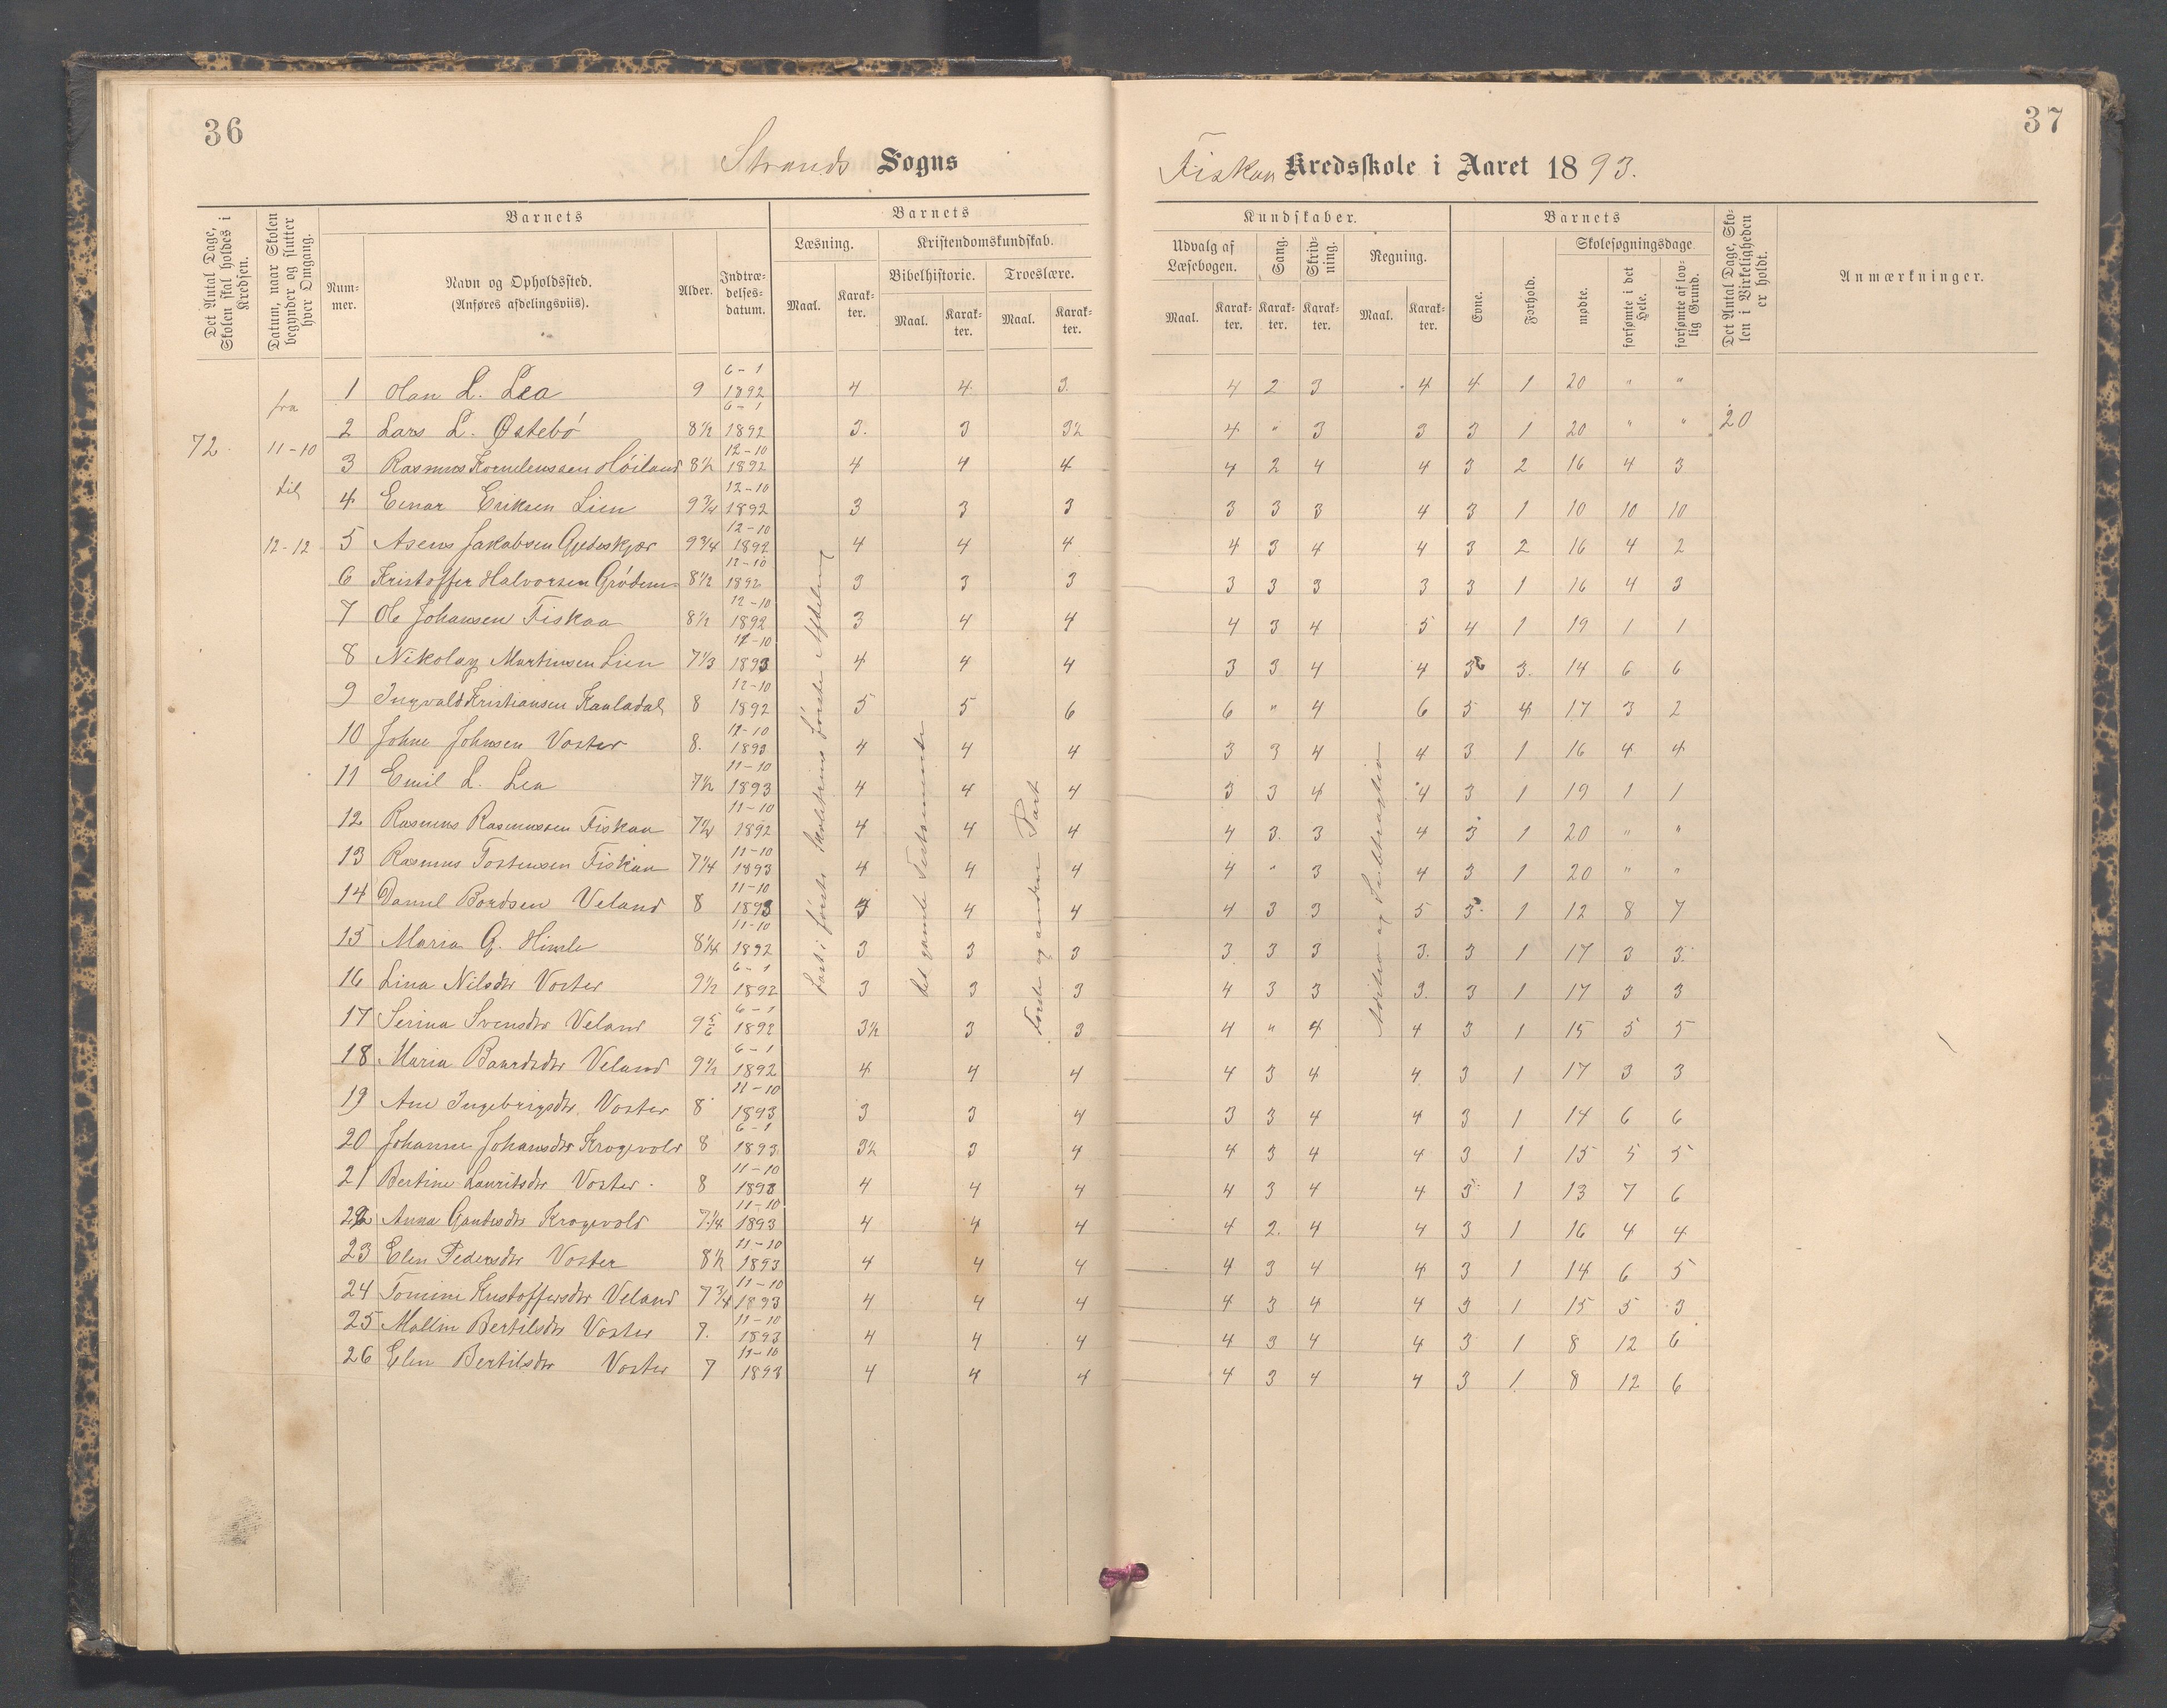 36
Strands Sogns
37
Fiskaa Kredsskole i Aaret 1893.
Det Antal Dage, Skolen skal holdes i Kredsen.
Datum, naar Skolen begynder og slutter hver Omgang.
Barnets
Num-mer.
Navn og Opholdssted.
(Anføres afdelingsviis).
Alder.
Indtræ-delses-datum.
Barnets
Læsning.
Maal.
Karak-ter.
Kristendomskundskab.
Bibelhistorie.
Maal.
Karak-ter.
Troeslære.
Maal.
Karak-ter.
Kundskaber.
Udvalg af Læsebogen.
Maal.
Karak-ter.
Sang.
Karak-ter.
Skriv-ning.
Karak-ter.
Regning.
Maal.
Karak-ter.
Barnets
Evne.
Forhold.
Skolesøgningsdage
mødte.
forsømte i det Hele.
forsømte af lov-lig Grund.
Det Antal Dage, Sko-len i Virkeligheden er holdt.
Anmærkninger.
72.
fra
11-10
til
12-12
20
det gamle Testamente
Første og anden Part
Addition og Subtraktion
1 L. Lea 9 6-1 1892 4 4 3. 4 2 3 4 4 1 20 " "
2 Lars L. Østebø 8½ 6-1 1892 3. 3 3½ 4 " 3 3 3 1 20 " "
3 Rasmus Korneliussen Høiland 8½ 12-10 1892 4 4 4 4 2 4 4 3 2 16 4 3
4 Einar Eriksen Lien 9¾ 12-10 1892 3 3 3 3 3 3 4 3 1 10 10 10
5 Asens Jakobsen 9¾ 12-10 1892 4 4 4 4 3 4 4 3 2 16 4 2
6 Kristoffer Halvorsen Grødem 8½ 12-10 1892 3 3 3 3 3 3 3 3 1 16 4 3
7 Ole Johansen Fiskaa 8½ 12-10 1892 3 4 4 4 3 4 5 4 1 19 1 1
8 Nikolay Martinsen Lien 7⅓ 12-10 1893 4 4 4 3 3 4 4 3 3. 14 6 6
9 Ingvald Kristiansen 8 12-10 1892 5 5 6 6 " 4 6 5 4 17 3 2
10 Johne Johnsen Voster 8. 12-10 1893 4 4 4 3 3 4 4 3 1 16 4 4
11 Emil L. Lea 7½ 11-10 1893 4 4 4 3 3 4 4 3 1 19 1 1
12 Rasmus Rasmussen Fiskaa 11-10 1892 4 4 4 4 3. 3 4 3 1 20 " "
13 Rasmus Tostensen Fiskaa 7¼ 11-10 1893 4 4 4 4 " 3 4 3 1 20 " "
14 Daniel Bordsen Veland 8 11-10 1893 4 4 4 3 3 5 3 1 12 8 7
15 Maria G. Himle 8¼ 11-10 1892 3 3 3 3 3 3 3. 3 1 17 3 3
16 Lina Nilsdtr Voster 9½ 6-1 1892 3 3 3 4 3 3 3. 3 1 17 3 3
17 Serina Svensdtr Veland 9⅚ 6-1 1892 3½ 3 3 4 " 4 4 3 1 15 5 5
18 Maria Baardsdtr Veland 9½ 6-1 1892 4 4 4 4 3 4 4 3 1 17 3 3
19 Ane Ingebrigsdtr. Voster 8 11-10 1893 3 3 4 3 3 4 4 3 1 14 6 6
20 Johanne Johansdtr Krogevold 8 6-1 1893 3½ 3 4 4 3 4 4 3 1 15 5 5
21 Bertine Lauritsdtr Voster 8 11-10 1893 4 4 4 4 3 4 4 3 1 13 7 6
22 Anna Gautesdtr Krogevold 7¼ 11-10 1893 4 4 4 4 2. 4 4 3 1 16 4 4
23 Elen Pedersdtr Voster 8½ 11-10 1893 4 4 4 4 3 4 4 3 1 14 6 5
24 Tomine Kristoffersdtr Veland 7¾ 11-10 1893 4 4 4 4 3 4 4 3 1 15 5 3
25 Mallin Bertilsdtr Voster 11-10 1893 4 4 4 4 3 4 4 3 1 8 12 6
26 Elen Bertilsdtr Voster 7 11-10 1893 4 4 4 4 3 4 4 3 1 8 12 6